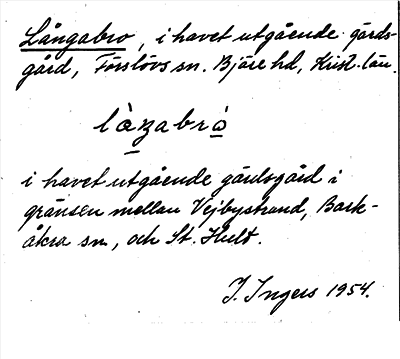 Långabro, i havet utgående gärds-
gård, Förslövs sn. Bjäre hd, Krist. län.
làzabrò
i havet utgående gärdsgård i
gränsen mellan Vejbystrand, Bark-
åkra sn, och St. Hult.
I. Ingers 1954.